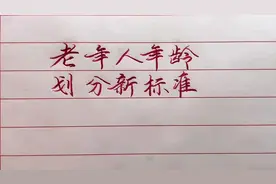 老年人年龄
划分新标准